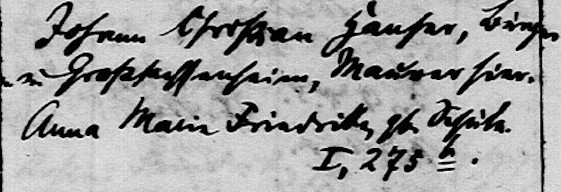 Johann Christian Häußer, Bürger
in Großsachsenheim, Maurer hier.
Anna Marie Friedrike, geb. Schütz.
I, 275 b.